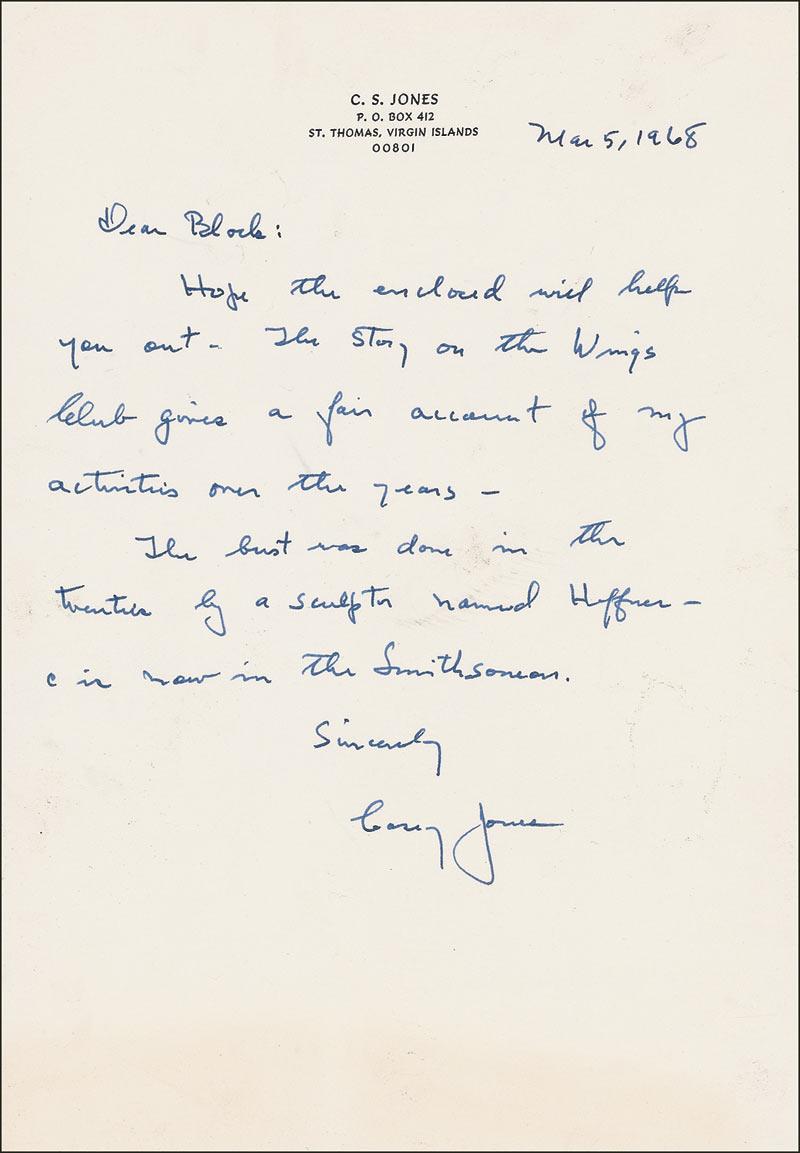 C. S. JONES
P. O. BOX 412
ST. THOMAS, VIRGIN ISLANDS
00801
Mar 5, 1968
Dear Block:
Hope the enclosed will help
you out - The Story on the Wings
Club gives a fair account of my
activities over the years -
The bust was done in the
twenties by a sculptor named Heffner -
& is now in the Smithsonean.
Sincerely
Casey Jones